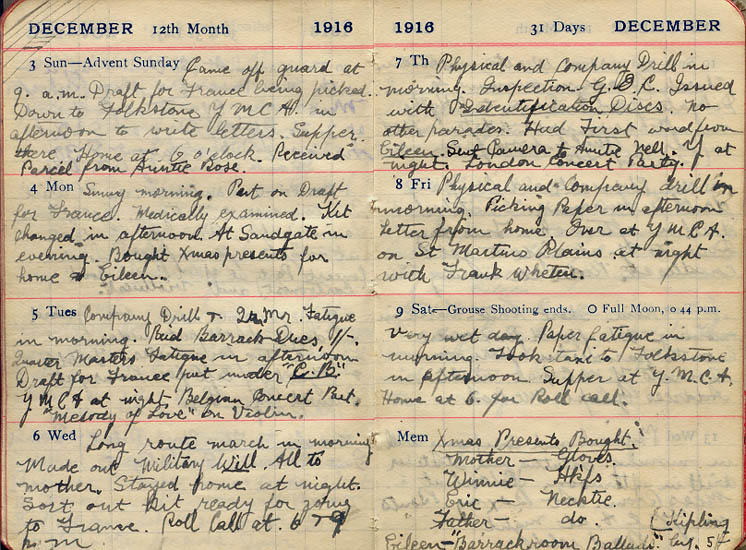 DECEMBER 12th Month 1916
3 Sun—Advent Sunday Came off guard at
9. a.m. Draft for France being picked.
Down to Folkstone Y M C A. in
afternoon to write letters. Supper
there Home at 6 o'clock. Received
Parcel from Auntie Rose
4 Mon Sunny morning. Put on Draft
for France. Medically examined. Kit
changed in afternoon. At Sandgate in
evening. Bought Xmas presents for
home & Eileen.
5 Tues Company Drill & Mr. Fatigue
in morning. Paid Barrack Dues, 1/-.
Quarter Masters Fatigue in afternoon
Draft for France put under "C.B."
Y M C A at night Belgian Concert Part.
"Melody of Love" on Violin.
6 Wed Long route march in morning
Made out Military Will. All to
mother. Stayed home at night.
Sort out Kit ready for going
to France. Roll Call at 6 & 9
p.m.
1916 31 Days DECEMBER
7 Th Physical and Company Drill in
morning. Inspection G.O.C. Issued
with Identification Discs. no
other parades. Had First word from
Eileen. Sent Camera to Auntie Nell. Y at
night. London Concert Party.
8 Fri Physical and Company drill in
morning. Picking Paper in afternoon
Letter from home. Over at Y M C A.
on St Martins Plains at night
with Frank
9 Sat—Grouse Shooting ends. O Full Moon, 0 44 p.m.
Very wet day. Paper fatigue in
morning. Took to Folkstone
in afternoon. Supper at Y.M.C.A.
Home at 6. for Roll call.
Mem Xmas Presents Bought.
Mother — Gloves.
Winnie — Hkfs
Eric — Necktie.
Father — do. (Kipling
Eileen—"Barrack room Ballads"